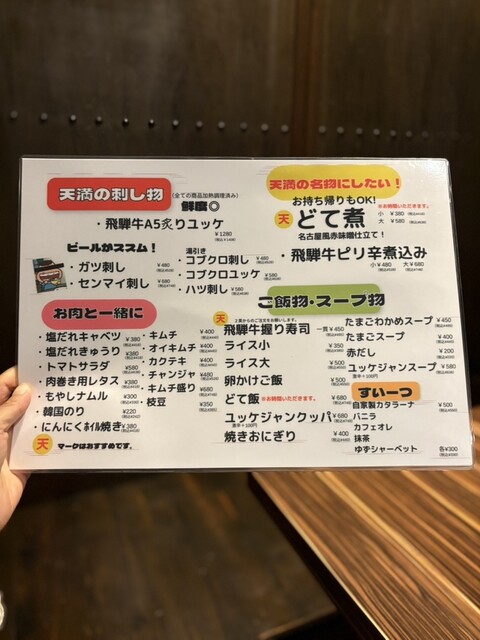 天満の刺し物
(全ての商品加熱調理済み)
鮮度◎
・飛騨牛A5炙りユッケ
¥1280
ビールがススム!
・ガツ刺し ¥480
・センマイ刺し ¥680
湯引き
・コブクロ刺し ¥480
・コブクロユッケ ¥580
・ハツ刺し ¥580
天満の名物にしたい!
お持ち帰りもOK!
※お時間いただきます。
天 どて煮
小 ¥380
大 ¥580
名古屋風赤味噌仕立て!
・飛騨牛ピリ辛煮込み
小¥480 大¥680
お肉と一緒に
・塩だれキャベツ ¥380
・塩だれきゅうり ¥380
・トマトサラダ ¥580
・肉巻き用レタス ¥380
・もやしナムル ¥300
・韓国のり ¥220
・にんにくホイル焼き ¥380
・キムチ ¥400
・オイキムチ ¥400
・カクテキ ¥400
・チャンジャ ¥480
・キムチ盛り ¥680
・枝豆 ¥350
天 マークはおすすめです。
ご飯物・スープ物
天 2貫からのご注文をお願いします。
飛騨牛握り寿司 一貫¥450
ライス小 ¥350
ライス大 ¥500
卵かけご飯 ¥500
どて飯 ※お時間いただきます。 ¥500
ユッケジャンクッパ ¥680
激辛+100円
焼きおにぎり ¥400
たまごわかめスープ ¥450
たまごスープ ¥400
赤だし ¥200
ユッケジャンスープ ¥580
激辛+100円
すいーつ
自家製カタラーナ ¥500
バニラ
カフェオレ
抹茶
ゆずシャーベット 各¥300